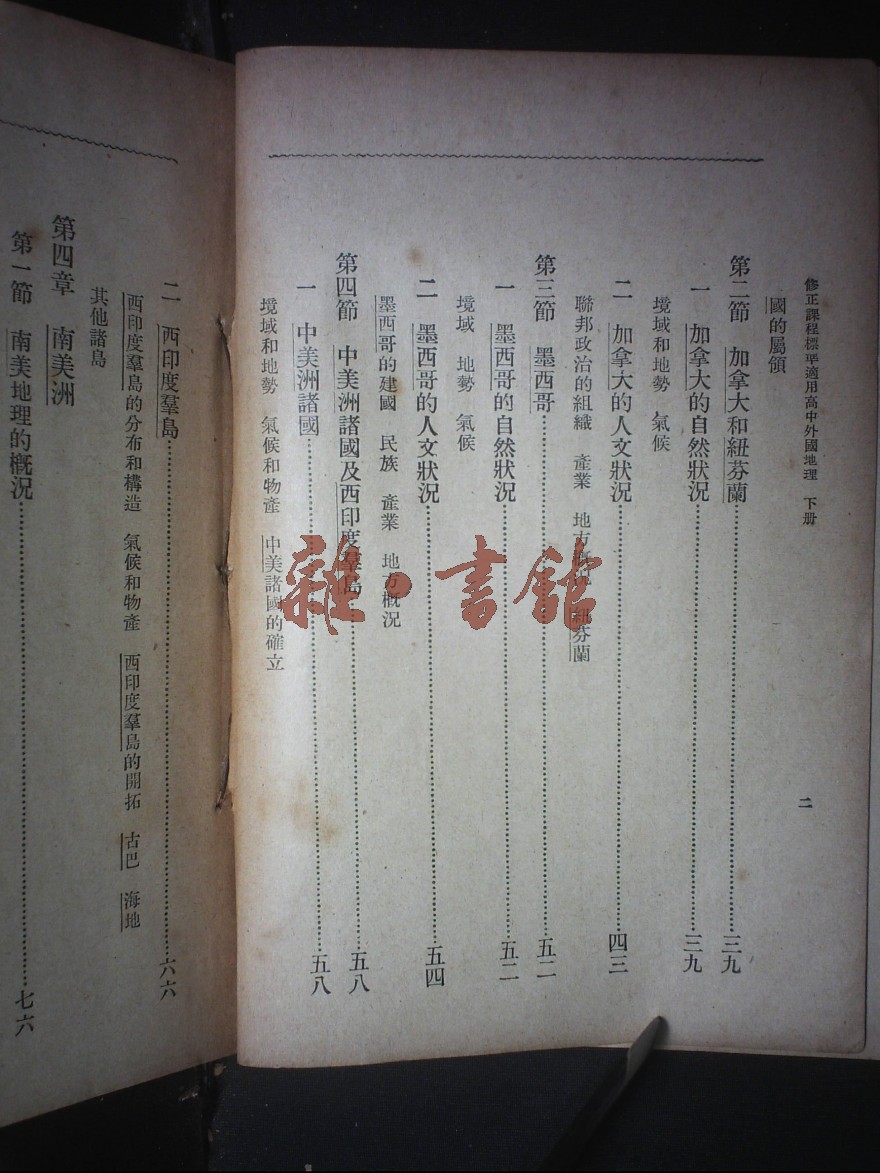 修正課程標準適用高中外國地理　下册
二
國的屬領
第二節　加拿大和紐芬蘭……三九
一　加拿大的自然狀況……三九
境域和地勢　氣候
二　加拿大的人文狀況……四三
聯邦政治的組織　產業　地方概況　紐芬蘭
第三節　墨西哥……五二
一　墨西哥的自然狀況……五二
境域　地勢　氣候
二　墨西哥的人文狀況……五四
墨西哥的建國　民族　產業　地方概況
第四節　中美洲諸國及西印度羣島……五八
一　中美洲諸國……五八
境域和地勢　氣候和物產　中美諸國的確立
二　西印度羣島……六六
西印度羣島的分布和構造　氣候和物產　西印度羣島的開拓　古巴　海地
其他諸島
第四章　南美洲
第一節　南美地理的概況……七六
雜·書館